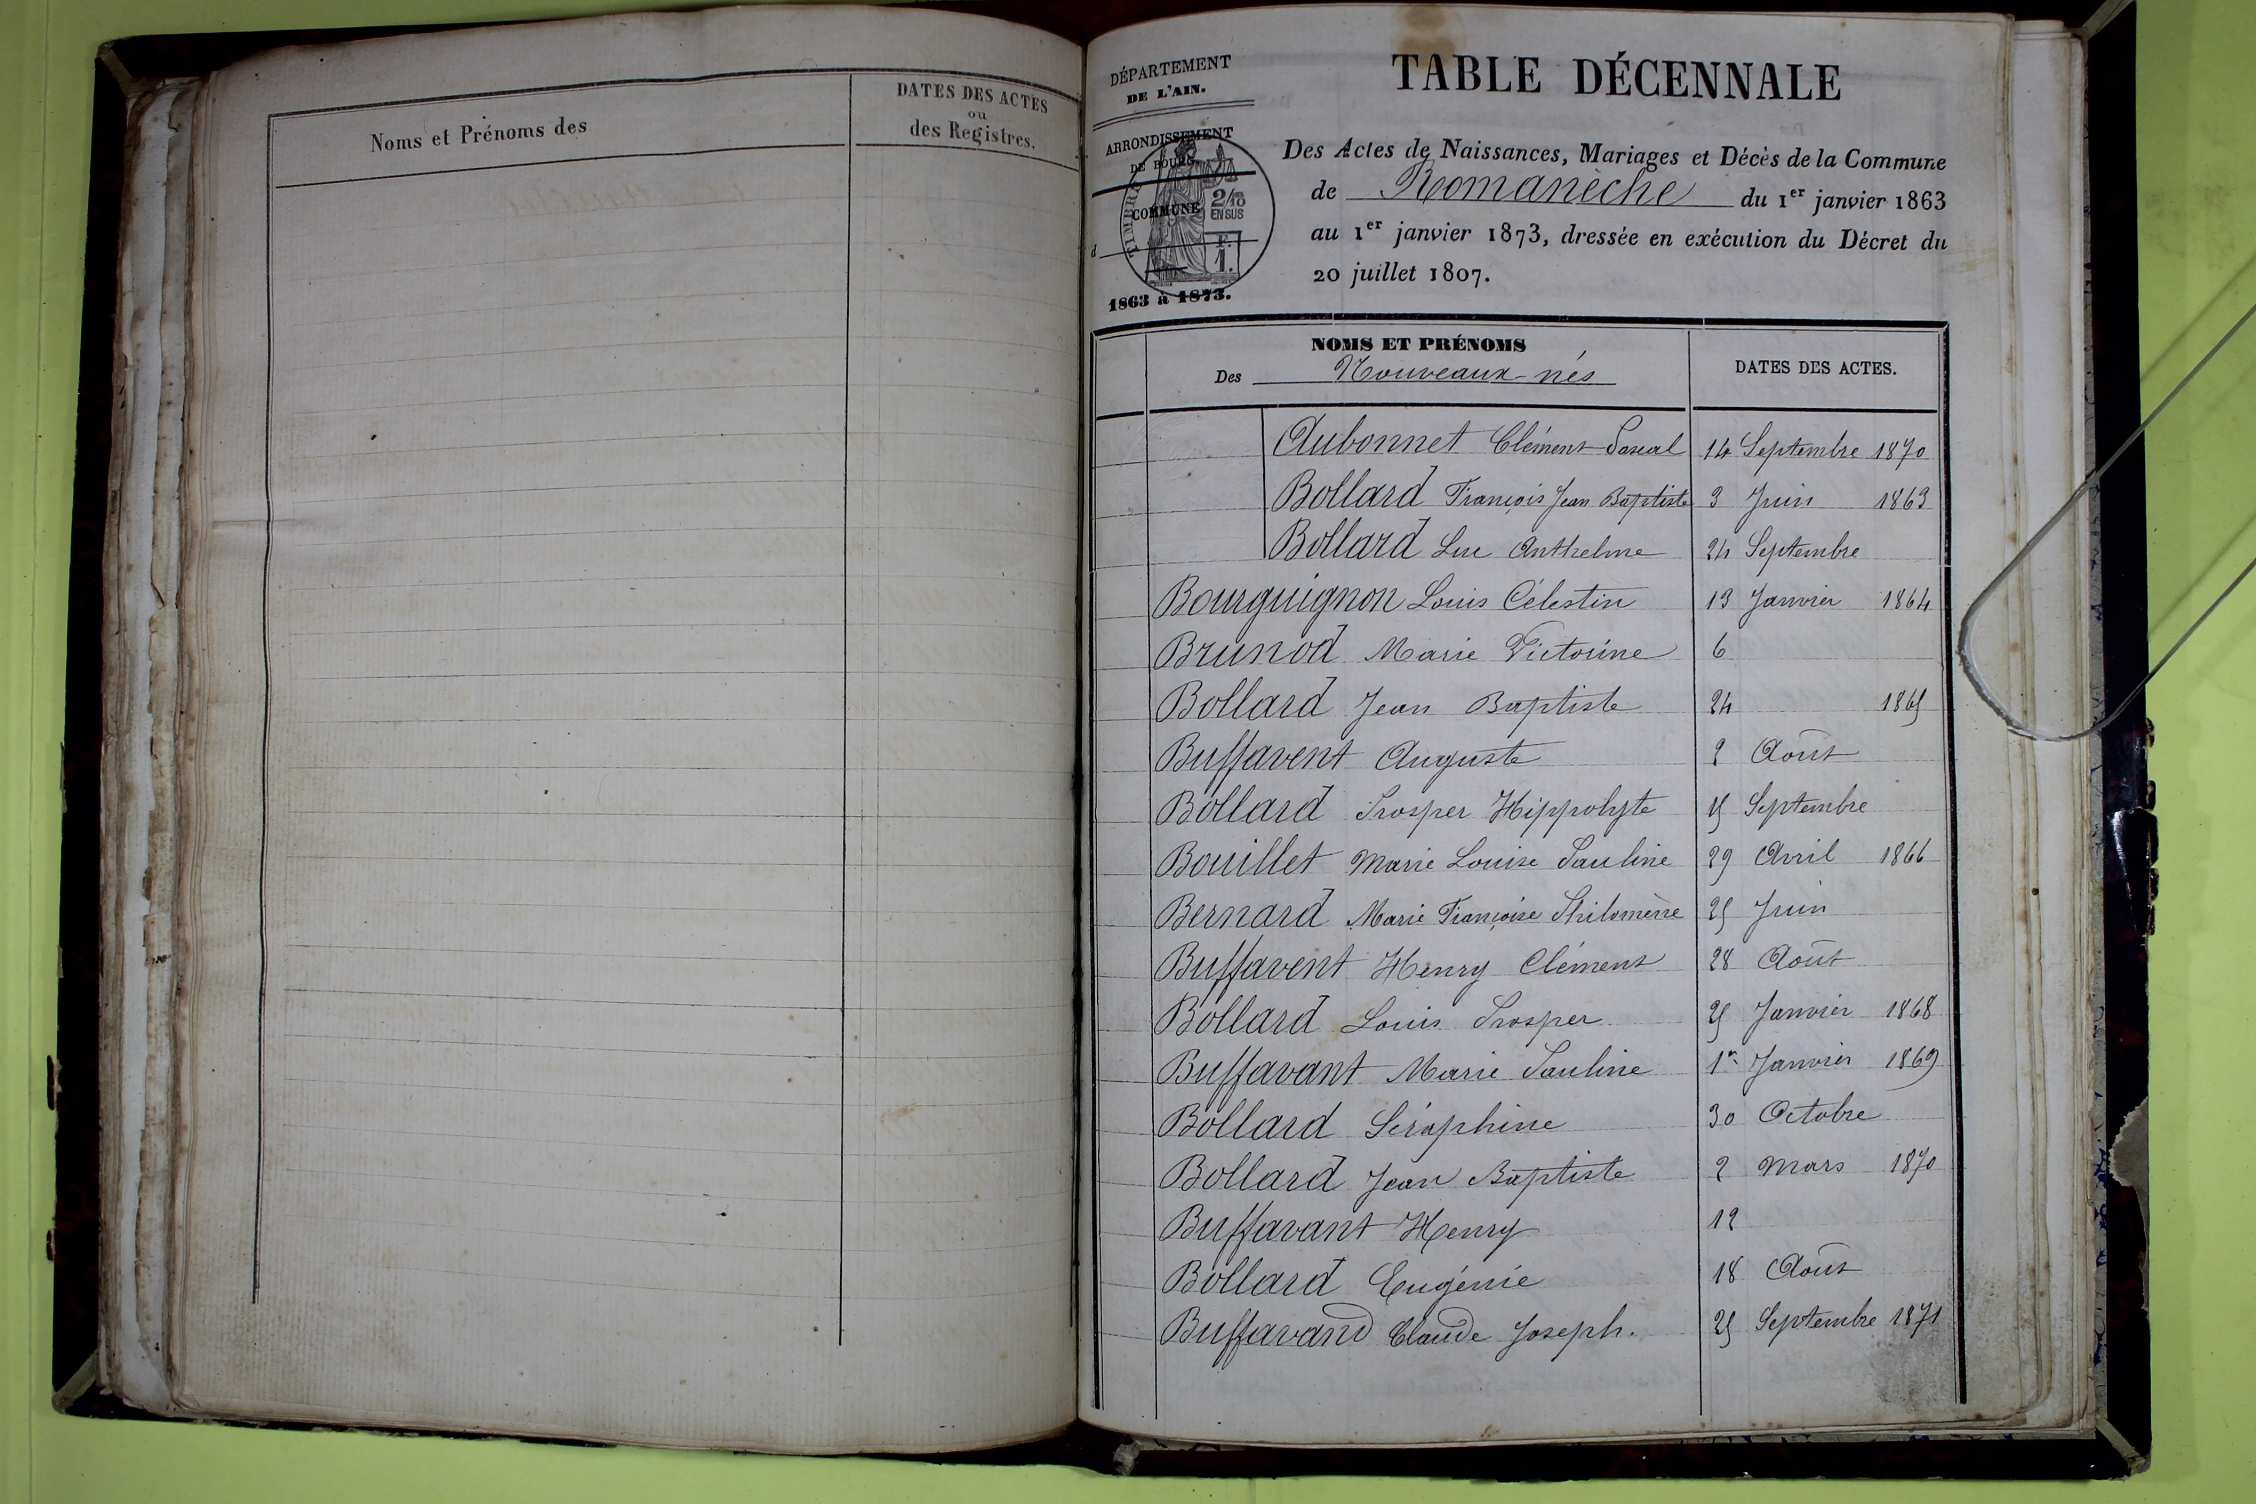 Noms et Prénoms des
DATES DES ACTES
ou
des Registres.
DÉPARTEMENT
DE L'AIN.
ARRONDISSEMENT
DE BOURG.
COMMUNE
TIMBRE
2/10
EN SUS
F.
1.
d
1863 à 1873.
TABLE DÉCENNALE
Des Actes de Naissances, Mariages et Décès de la Commune
de Romanèche du 1er janvier 1863
au 1er janvier 1873, dressée en exécution du Décret du
20 juillet 1807.
NOMS ET PRÉNOMS
Des Nouveaux-nés
DATES DES ACTES.
Aubonnet Clément Pascal 14 Septembre 1870
Bollard François Jean Baptiste 3 Juin 1863
Bollard Luc Anthelme 24 Septembre
Bourguignon Louis Célestin 13 Janvier 1864
Brunod Marie Victorine 6
Bollard Jean Baptiste 24 1865
Buffavent Auguste 2 Août
Bollard Prosper Hippolyte 15 Septembre
Bouillet Marie Louise Pauline 29 Avril 1866
Bernard Marie Françoise Philomène 25 Juin
Buffavent Henry Clément 28 Août
Bollard Louis Prosper 25 Janvier 1868
Buffavant Marie Pauline 1er Janvier 1869
Bollard Séraphine 30 Octobre
Bollard Jean Baptiste 2 Mars 1870
Buffavant Henry 12
Bollard Eugénie 18 Août
Buffavand Claude Joseph. 25 Septembre 1871